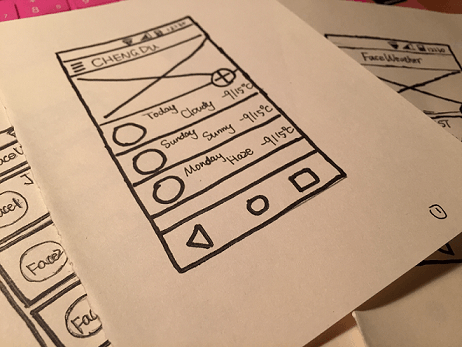 CHENGDU
Today Cloudy -9/15°C
Sunday Sunny -9/15°C
Monday Haze -9/15°C
1
FaceWeather
Face1
Face2
Face